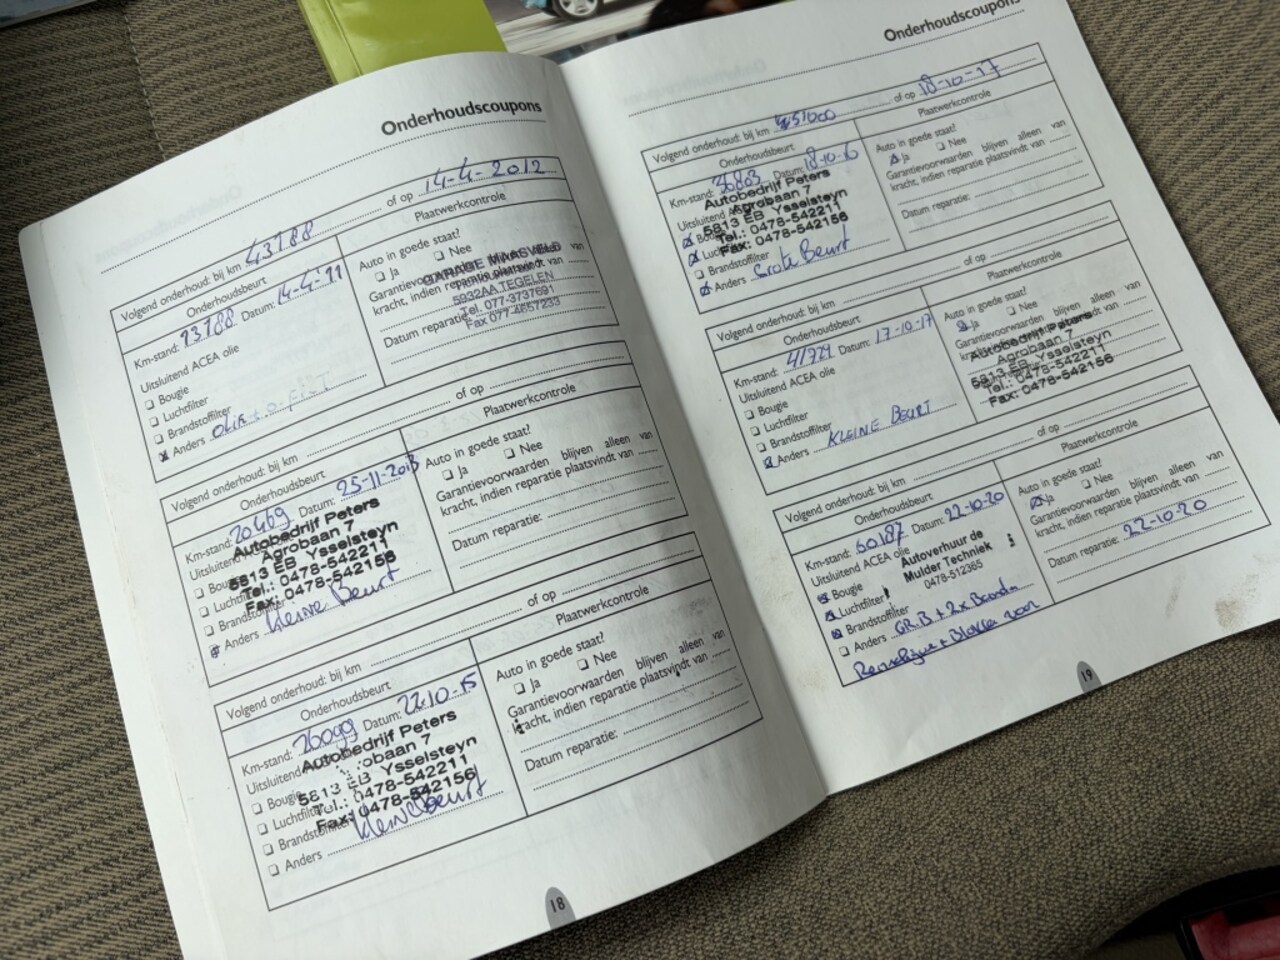 Onderhoudscoupons
Volgend onderhoud: bij km 43188 of op 14-4-2012
Onderhoudsbeurt
Plaatwerkcontrole
Km-stand: 13188 Datum: 14-4-'11
Uitsluitend ACEA olie
Bougie
Luchtfilter
Brandstoffilter
Anders
Auto in goede staat!
Ja Nee
Garantievoorwaarden blijven alleen van
kracht, indien reparatie plaatsvindt van
GARAGE MAASVELD
5932AA TEGELEN
Tel. 077-3737691
Fax 077-4657233
Datum reparatie:
Volgend onderhoud: bij km of op
Onderhoudsbeurt
Plaatwerkcontrole
Km-stand: 20469 Datum: 25-11-2013
Autobedrijf Peters
Agrobaan 7
5813 EB Ysselsteyn
Tel.: 0478-542211
Fax: 0478-542156
Anders kleine Beurt
Auto in goede staat!
Ja Nee
Garantievoorwaarden blijven alleen van
kracht, indien reparatie plaatsvindt van
Datum reparatie:
Volgend onderhoud: bij km of op
Onderhoudsbeurt
Plaatwerkcontrole
Km-stand: 26099 Datum: 22-10-15
Autobedrijf Peters
Agrobaan 7
5813 EB Ysselsteyn
Tel.: 0478-542211
Fax: 0478-542156
kleine beurt
Anders
Auto in goede staat!
Ja Nee
Garantievoorwaarden blijven alleen van
kracht, indien reparatie plaatsvindt van
Datum reparatie:
18
Onderhoudscoupons
Volgend onderhoud: bij km 451000 of op 18-10-17
Onderhoudsbeurt
Plaatwerkcontrole
Km-stand: 36803 Datum: 18-10-16
Autobedrijf Peters
Agrobaan 7
5813 EB Ysselsteyn
Tel.: 0478-542211
Fax: 0478-542156
Brandstoffilter
Anders Grote Beurt
Auto in goede staat!
Ja Nee
Garantievoorwaarden blijven alleen van
kracht, indien reparatie plaatsvindt van
Datum reparatie:
Volgend onderhoud: bij km of op
Onderhoudsbeurt
Plaatwerkcontrole
Km-stand: 41724 Datum: 17-10-17
Uitsluitend ACEA olie
Bougie
Luchtfilter
Brandstoffilter
Anders KLEINE BEURT
Auto in goede staat!
Ja Nee
Garantievoorwaarden blijven alleen van
Autobedrijf Peters
Agrobaan 7
5813 EB Ysselsteyn
Tel.: 0478-542211
Fax: 0478-542156
Volgend onderhoud: bij km of op
Onderhoudsbeurt
Plaatwerkcontrole
Km-stand: 60187 Datum: 22-10-20
Uitsluitend ACEA olie
Bougie
Luchtfilter
Brandstoffilter
Autoverhuur de
Mulder Techniek
0478-512365
Anders GR.B + 2x
voor
Auto in goede staat!
Ja Nee
Garantievoorwaarden blijven alleen van
kracht, indien reparatie plaatsvindt van
Datum reparatie: 22-10-20
19